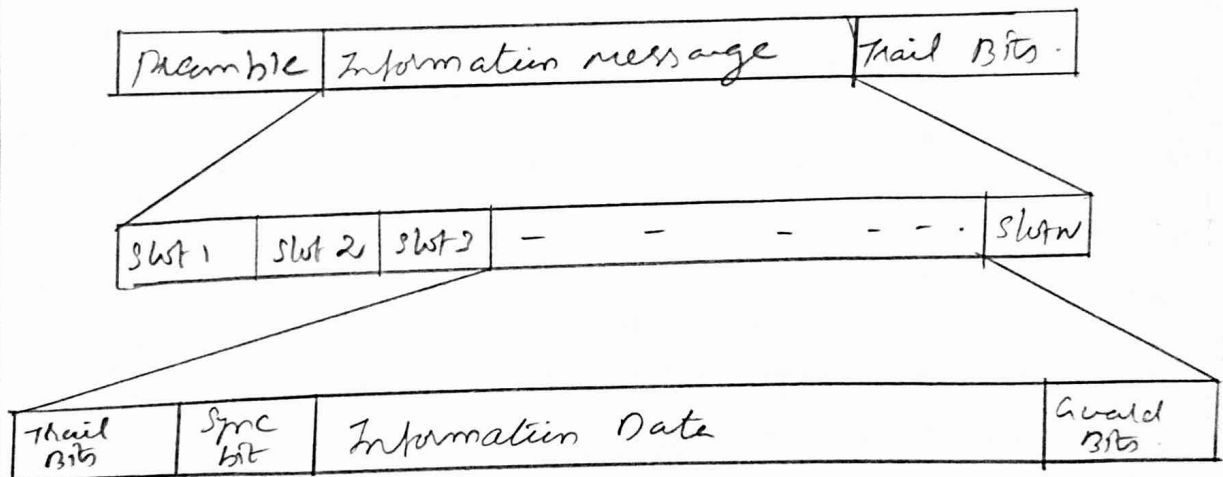 Preamble Information message Trail Bits.
Slot 1 Slot 2 Slot 3 - - - - - - . Slot N
Trail Bits Sync bit Information Data Guard Bits